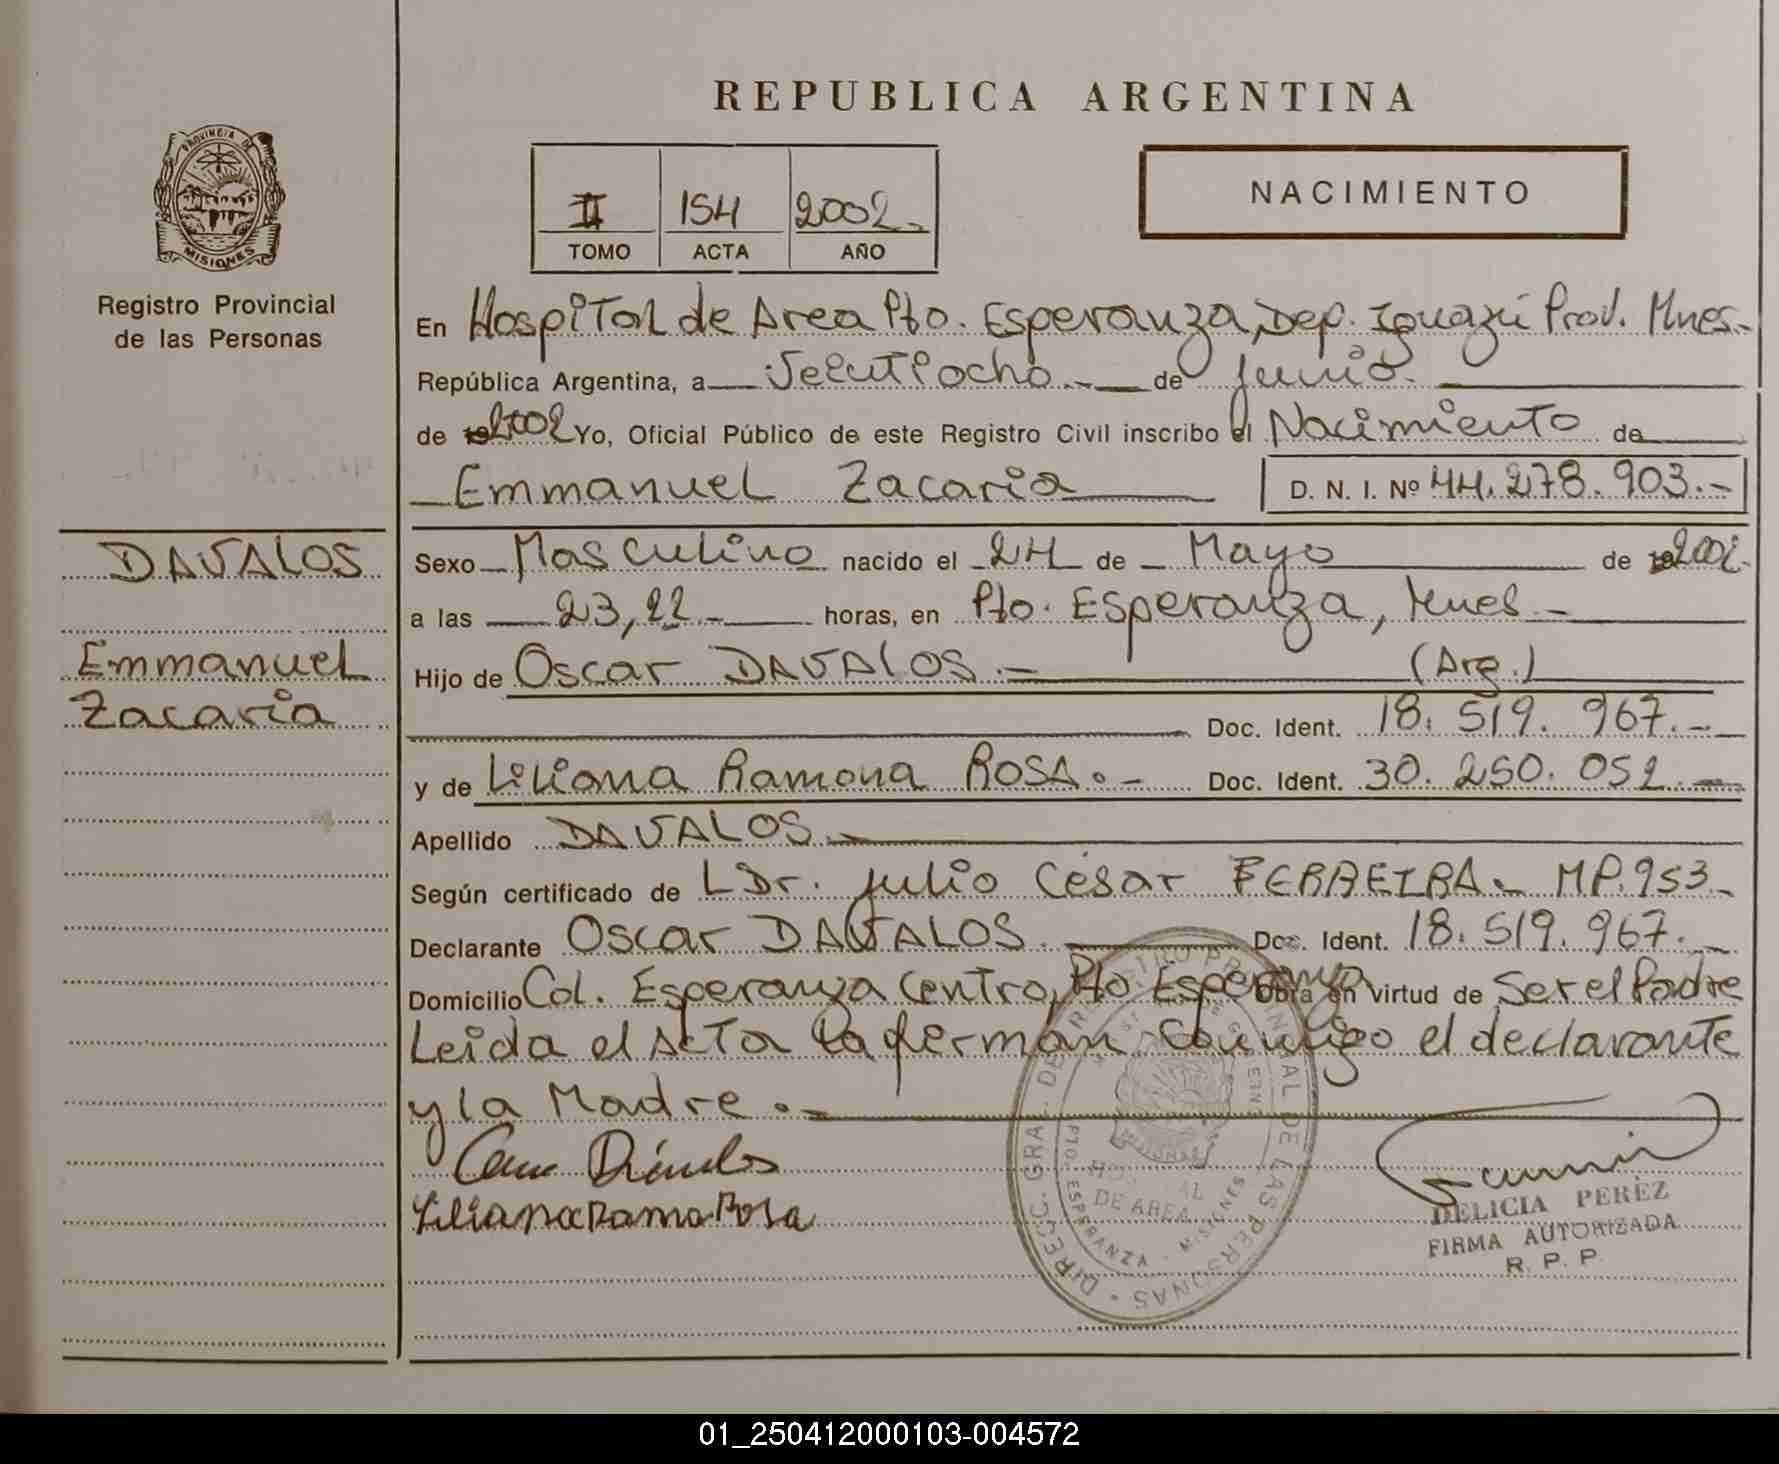 REPUBLICA ARGENTINA
PROVINCIA DE
MISIONES
Registro Provincial
de las Personas
II 154 2002.
TOMO ACTA AÑO
NACIMIENTO
En Hospital de Area Pto. Esperanza, Dep. Iguazú Prov. Mnes.-
República Argentina, a Veintiocho.- de Junio.
de 2002 Yo, Oficial Público de este Registro Civil inscribo el Nacimiento de
Emmanuel Zacaria D. N. I. Nº 44.278.903.-
DAVALOS
Emmanuel
Zacaria
Sexo Masculino nacido el 24 de Mayo de 2002.
a las 23,22.- horas, en Pto. Esperanza, Mnes.-
Hijo de Oscar DAVALOS.- (Arg.)
Doc. Ident. 18.519.967.-
y de Liliana Ramona ROSA.- Doc. Ident. 30.250.052.-
Apellido DAVALOS.-
Según certificado de L Dr. Julio César FERREIRA.- M.P.953.-
Declarante Oscar DAVALOS. Doc. Ident. 18.519.967.-
Domicilio Col. Esperanza Centro, Pto. Esperanza Obra en virtud de Ser el Padre
Leida el Acta la firman conmigo el declarante
y la Madre.-
Liliana Ramo Rosa
DIRECC. GRAL. DE REGISTRO PROVINCIAL DE LAS PERSONAS
HOSPITAL
DE AREA
PTO. ESPERANZA - MISIONES
DELICIA PERÉZ
FIRMA AUTORIZADA
R. P. P.
01_250412000103-004572